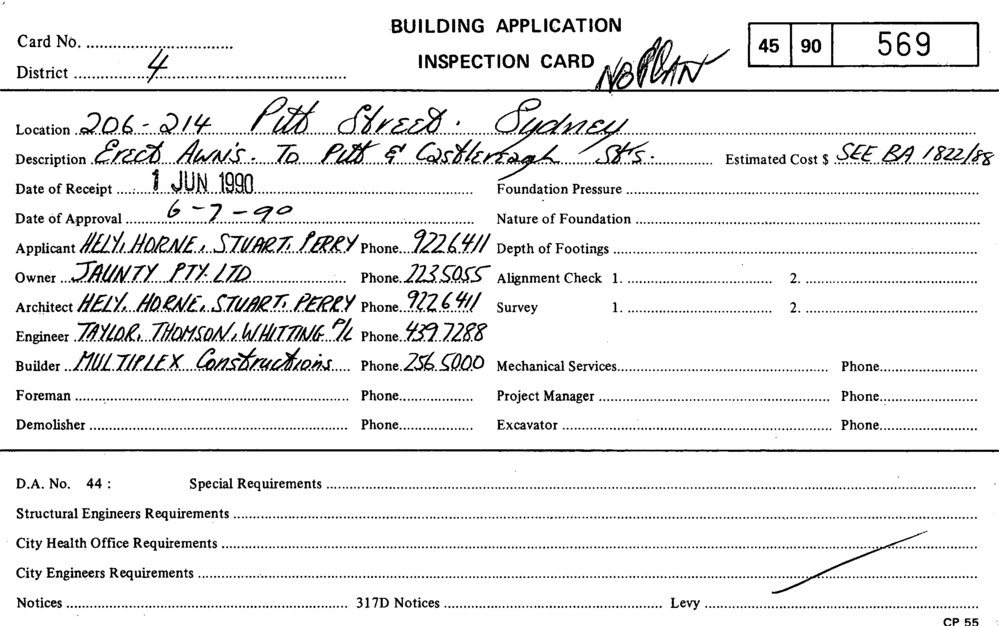 BUILDING APPLICATION
Card No. 45 90 569
INSPECTION CARD NO PLAN
District 4
Location 206-214 Pitt Street. Sydney
Description Erect Awn's. To Pitt & Castlereagh St's. Estimated Cost $ SEE BA 1822/88
Date of Receipt 1 JUN 1990 Foundation Pressure
Date of Approval 6-7-90 Nature of Foundation
Applicant HELY, HORNE, STUART, PERRY Phone 9226411 Depth of Footings
Owner JAUNTY PTY. LTD Phone 2235055 Alignment Check 1. 2.
Architect HELY, HORNE, STUART, PERRY Phone 9226411 Survey 1. 2.
Engineer TAYLOR, THOMSON, WHITTING P/L Phone 439 7288
Builder MULTIPLEX Constructions Phone 256 5000 Mechanical Services Phone
Foreman Phone Project Manager Phone
Demolisher Phone Excavator Phone
D.A. No. 44 : Special Requirements
Structural Engineers Requirements
City Health Office Requirements
City Engineers Requirements
Notices 317D Notices Levy
CP 55